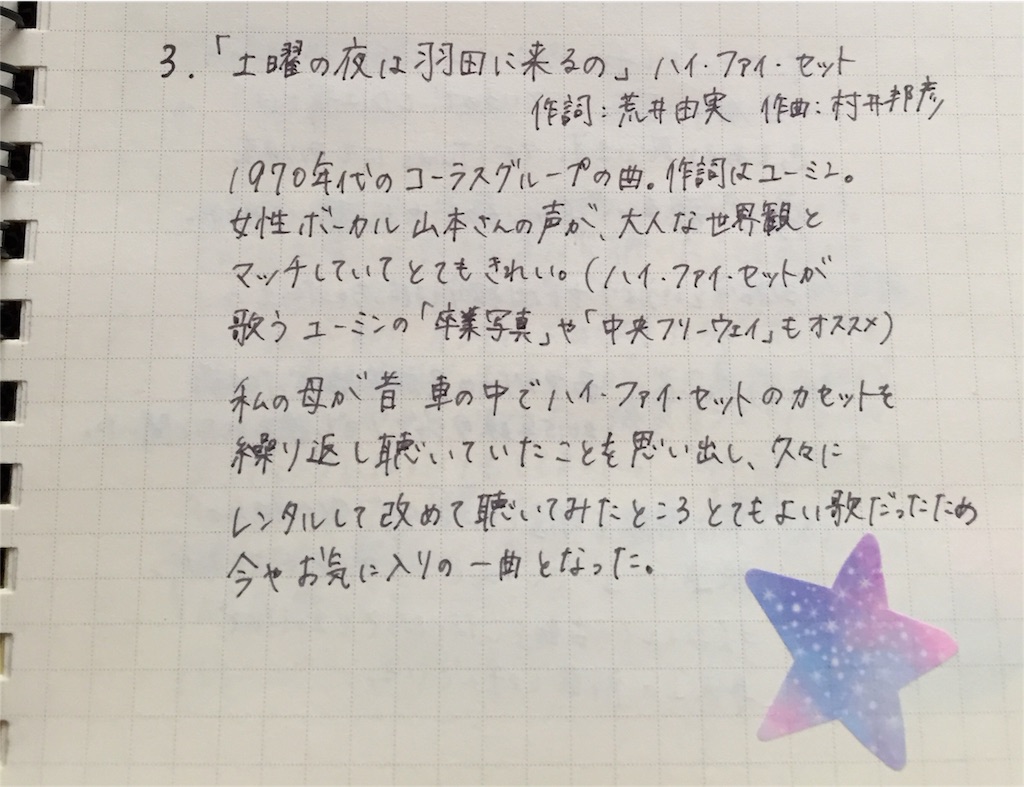 3.「土曜の夜は羽田に来るの」ハイ・ファイ・セット
作詞：荒井由実 作曲：村井邦彦
1970年代のコーラスグループの曲。作詞はユーミン。
女性ボーカル山本さんの声が、大人な世界観と
マッチしていてとてもきれい。（ハイ・ファイ・セットが
歌うユーミンの「卒業写真」や「中央フリーウェイ」もオススメ）
私の母が昔 車の中でハイ・ファイ・セットのカセットを
繰り返し聴いていたことを思い出し、久々に
レンタルして改めて聴いてみたところとてもよい歌だったため
今やお気に入りの一曲となった。